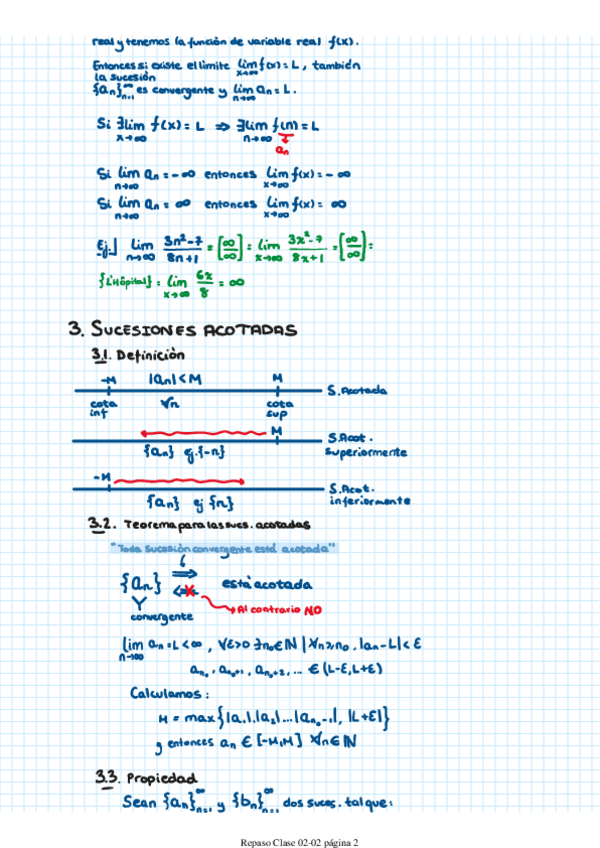 real y tenemos la función de variable real f(x).
Entonces si existe el límite lim f(x) = L, también
x→∞
la sucesión
{an}∞n=1 es convergente y lim an = L.
n→∞
Si ∃lim f(x) = L ⇒ ∃lim f(n) = L
x→∞ n→∞
an
Si lim an = -∞ entonces lim f(x) = -∞
n→∞ x→∞
Si lim an = ∞ entonces lim f(x) = ∞
n→∞ x→∞
Ej.] lim 3n²-7 / 8n+1 = [∞/∞] = lim 3x²-7 / 8x+1 = [∞/∞] =
n→∞ x→∞
{L'Hôpital} = lim 6x/8 = ∞
x→∞
3. SUCESIONES ACOTADAS
3.1. Definición
-M |an| < M M
S. Acotada
cota inf ∀n cota sup
M
{an} ej. {-n} S. Acot. superiormente
-M
{an} ej {n} S. Acot. inferiormente
3.2. Teorema para las sues. acotadas
"Toda sucesión convergente está acotada"
{an} ⇒ está acotada
Al contrario NO
convergente
lim an = L < ∞, ∀ε>0 ∃n₀∈ℕ | ∀n≥n₀, |an - L| < ε
n→∞
an₀, an₀+1, an₀+2, ... ∈ (L-ε, L+ε)
Calculamos:
M = max{|a₁|, |a₂|...|an₀-₁|, |L+ε|}
y entonces an ∈ [-M, M] ∀n∈ℕ
3.3. Propiedad
Sean {an}∞n=1 y {bn}∞n=1 dos suces. tal que:
Repaso Clase 02-02 página 2